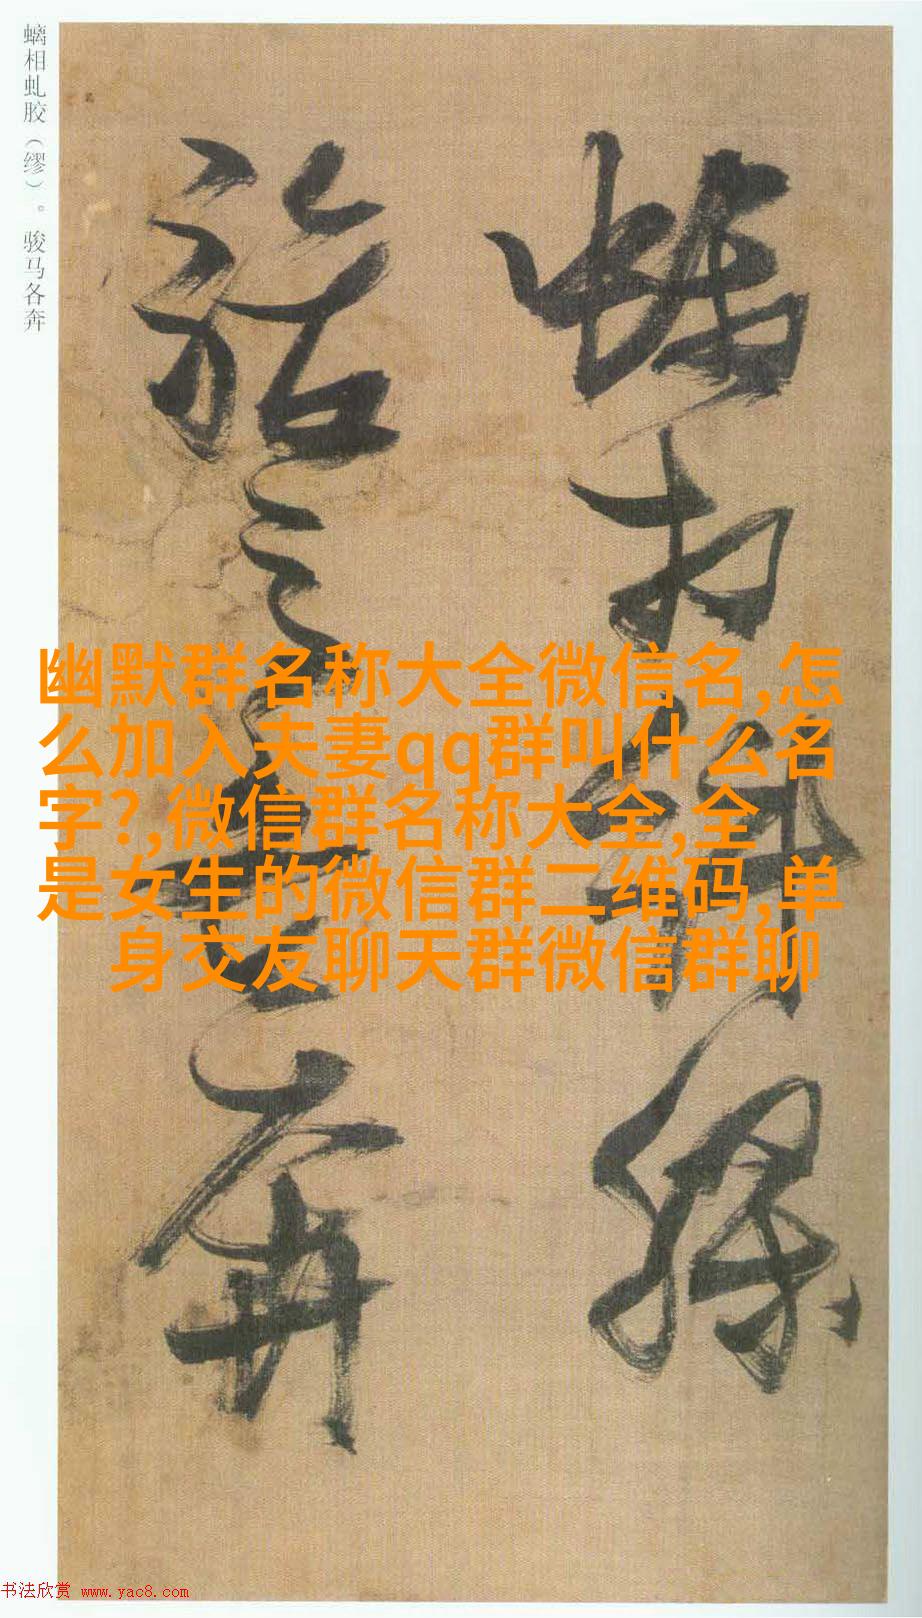 螭相虬胶（缪）。骏马各奔
螭相虬缪
骏马各奔
幽默群名称大全微信名,怎
么加入夫妻qq群叫什么名
字?,微信群名称大全,全
是女生的微信群二维码,单
身交友聊天群微信群聊
书法欣赏 www.yac8.com